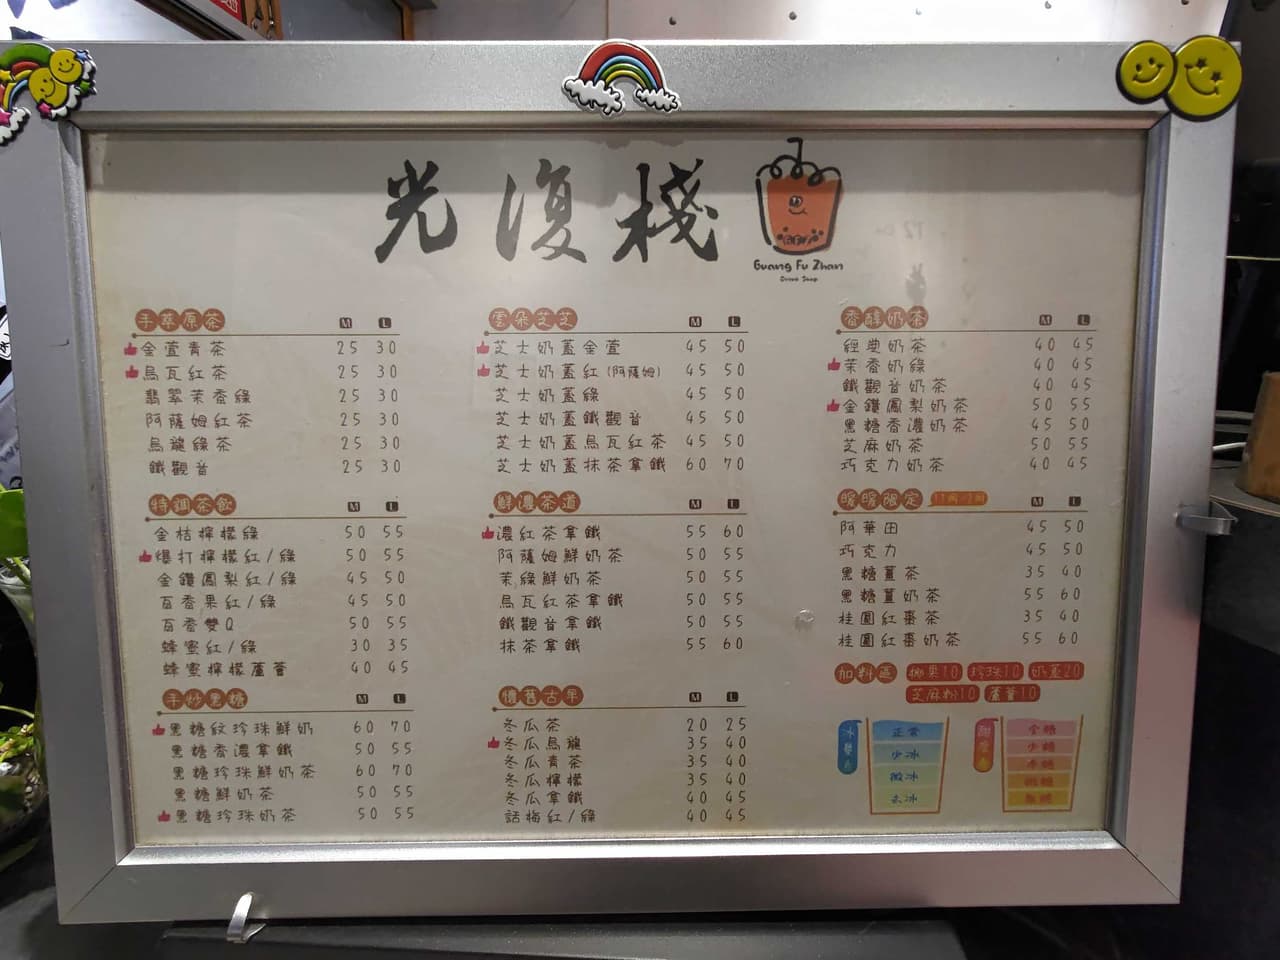 光復棧
Guang Fu Zhan
Drink Shop
手萃原茶 M L
金萱青茶 25 30
烏瓦紅茶 25 30
翡翠茉香綠 25 30
阿薩姆紅茶 25 30
烏龍綠茶 25 30
鐵觀音 25 30
特調茶飲 M L
金桔檸檬綠 50 55
爆打檸檬紅/綠 50 55
金鑽鳳梨紅/綠 45 50
百香果紅/綠 45 50
百香雙Q 50 55
蜂蜜紅/綠 30 35
蜂蜜檸檬蘆薈 40 45
手炒黑糖 M L
黑糖紋珍珠鮮奶 60 70
黑糖香濃拿鐵 50 55
黑糖珍珠鮮奶茶 60 70
黑糖鮮奶茶 50 55
黑糖珍珠奶茶 50 55
雲朵芝芝 M L
芝士奶蓋金萱 45 50
芝士奶蓋紅(阿薩姆) 45 50
芝士奶蓋綠 45 50
芝士奶蓋鐵觀音 45 50
芝士奶蓋烏瓦紅茶 45 50
芝士奶蓋抹茶拿鐵 60 70
鮮濃茶道 M L
濃紅茶拿鐵 55 60
阿薩姆鮮奶茶 50 55
茉綠鮮奶茶 50 55
烏瓦紅茶拿鐵 50 55
鐵觀音拿鐵 50 55
抹茶拿鐵 55 60
懷舊古早 M L
冬瓜茶 20 25
冬瓜烏龍 35 40
冬瓜青茶 35 40
冬瓜檸檬 35 40
冬瓜拿鐵 40 45
話梅紅/綠 40 45
香醇奶茶 M L
經典奶茶 40 45
茉香奶綠 40 45
鐵觀音奶茶 40 45
金鑽鳳梨奶茶 50 55
黑糖香濃奶茶 45 50
芝麻奶茶 50 55
巧克力奶茶 40 45
暖暖限定 M L
阿華田 45 50
巧克力 45 50
黑糖薑茶 35 40
黑糖薑奶茶 55 60
桂圓紅棗茶 35 40
桂圓紅棗奶茶 55 60
加料區 椰果10 珍珠10 奶蓋20
芝麻粉10 蘆薈10
冰量
正常
少冰
微冰
去冰
甜度
全糖
少糖
半糖
微糖
無糖